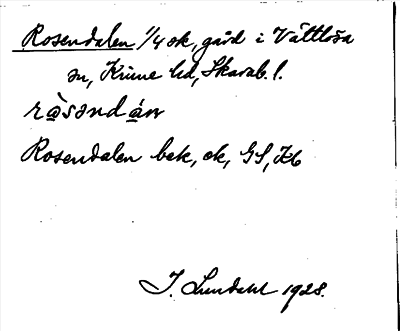 Rosendalen 1/4 sk, gård i Vättlösa
sn, Kinne hd, Skarab. l.
rɷ̀səndáṇ
Rosendalen bek, ek, GS, Kb
I. Lundahl 1928.